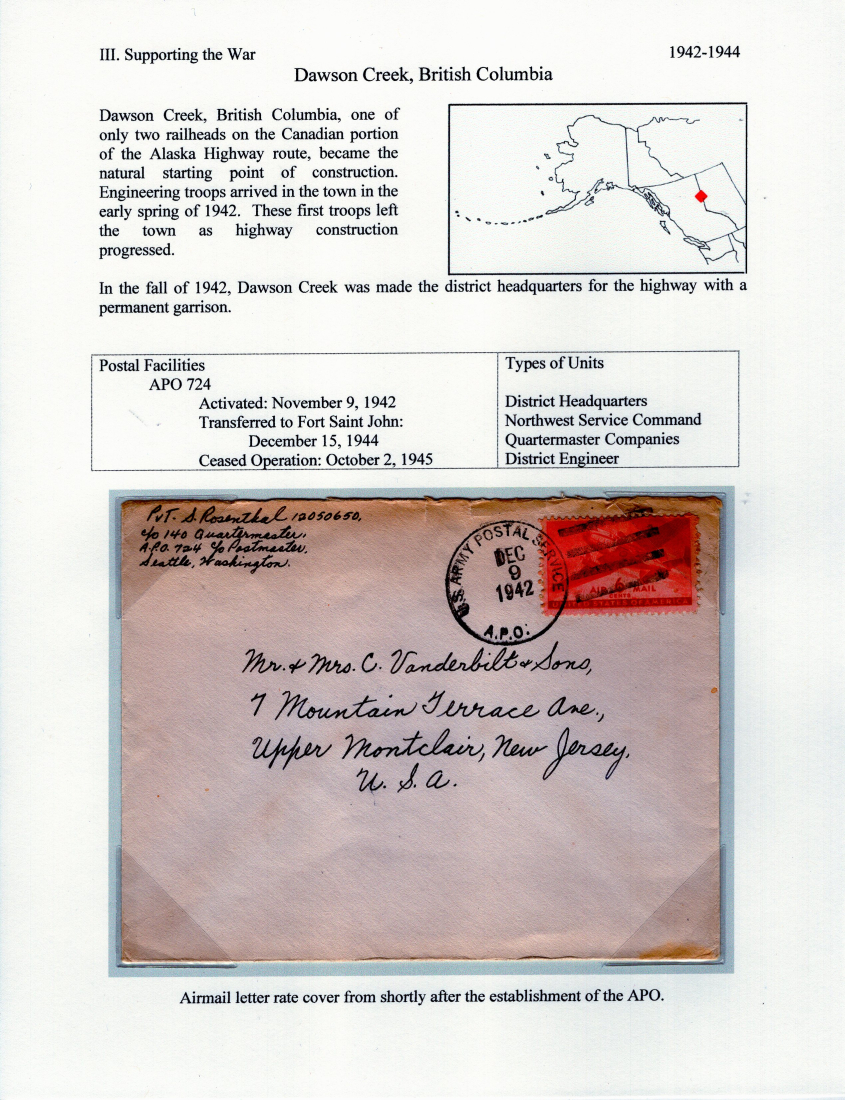 III. Supporting the War
1942-1944
Dawson Creek, British Columbia
Dawson Creek, British Columbia, one of
only two railheads on the Canadian portion
of the Alaska Highway route, became the
natural starting point of construction.
Engineering troops arrived in the town in the
early spring of 1942. These first troops left
the town as highway construction
progressed.
In the fall of 1942, Dawson Creek was made the district headquarters for the highway with a
permanent garrison.
Postal Facilities
APO 724
Activated: November 9, 1942
Transferred to Fort Saint John:
December 15, 1944
Ceased Operation: October 2, 1945
Types of Units
District Headquarters
Northwest Service Command
Quartermaster Companies
District Engineer
Pvt. S. Rosenthal 12050650,
c/o 140 Quartermaster,
A.P.O. 724 c/o Postmaster,
Seattle, Washington.
U.S. ARMY POSTAL SERVICE
DEC
9
1942
A.P.O.
AIR 6 MAIL
CENTS
UNITED STATES OF AMERICA
Mr. & Mrs. C. Vanderbilt & Sons,
7 Mountain Terrace Ave.,
Upper Montclair, New Jersey.
U. S. A.
Airmail letter rate cover from shortly after the establishment of the APO.